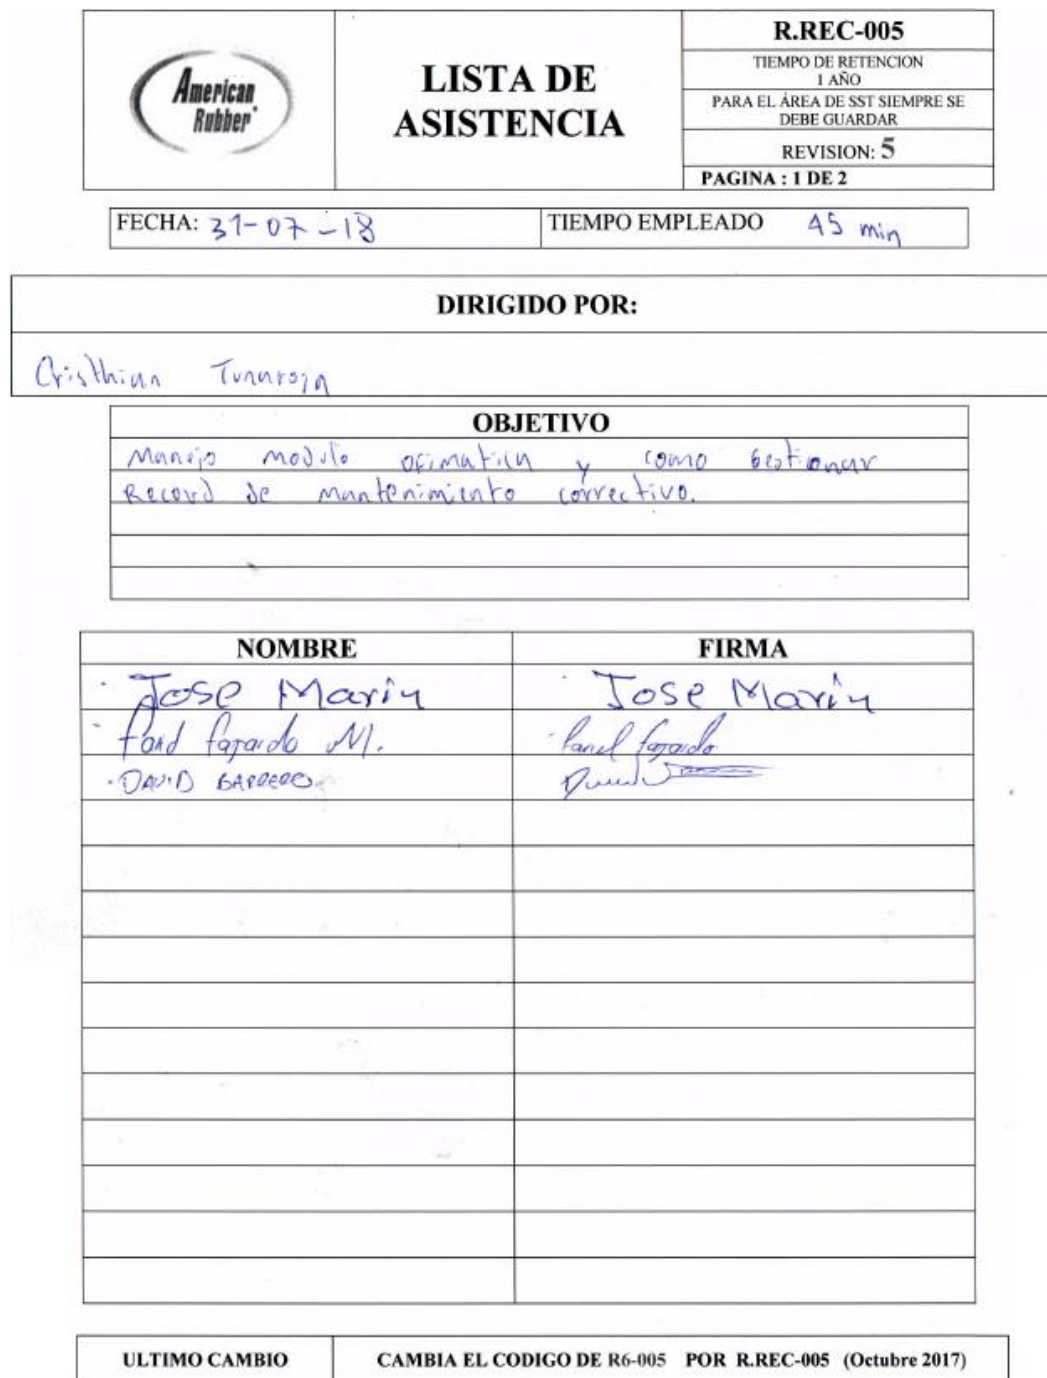 American
Rubber
LISTA DE
ASISTENCIA
R.REC-005
TIEMPO DE RETENCION
1 AÑO
PARA EL ÁREA DE SST SIEMPRE SE
DEBE GUARDAR
REVISION: 5
PAGINA : 1 DE 2
FECHA: 31-07-18 TIEMPO EMPLEADO 45 min
DIRIGIDO POR:
Cristhian
OBJETIVO
Manejo modulo ofimatica y como Gestionar
Record de mantenimiento correctivo.
NOMBRE FIRMA
Jose Marin Jose Marin
fajardo M. fajardo
DAVID BARRERO
ULTIMO CAMBIO CAMBIA EL CODIGO DE R6-005 POR R.REC-005 (Octubre 2017)